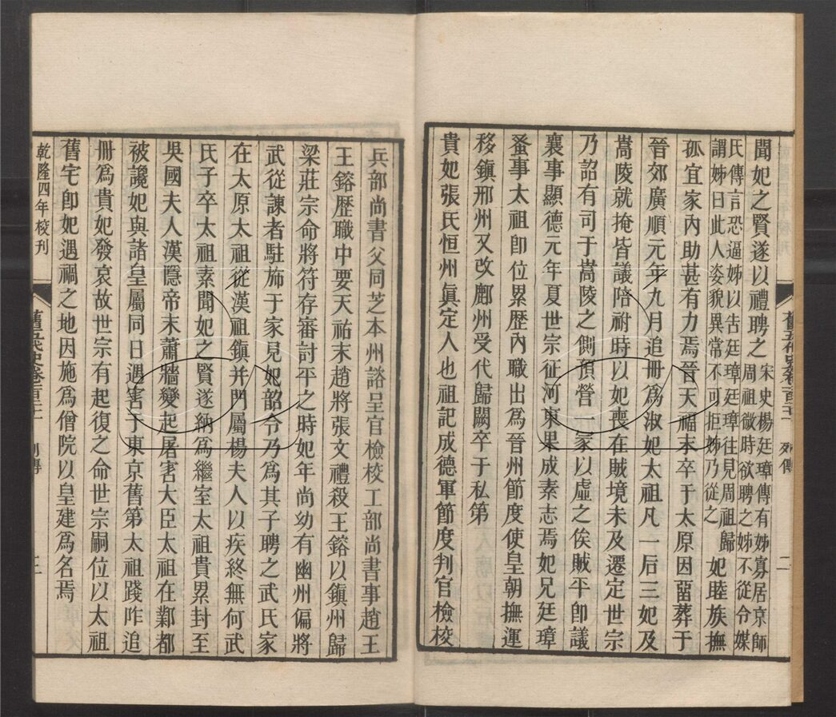 聞妃之賢遂以禮聘之
宋史楊廷璋傳有姊寡居京師
周祖微時欲聘之姊不從令媒
氏傳言恐逼姊以告廷璋廷璋往見周祖歸
謂姊曰此人姿貌異常不可拒姊乃從之
妃睦族撫
孤宜家內助甚有力焉晉天福末卒于太原因留葬于
晉郊廣順元年九月追冊爲淑妃太祖凡一后三妃及
嵩陵就掩皆議陪祔時以妃喪在賊境未及遷定世宗
乃詔有司于嵩陵之側預營一冢以虛之俟賊平卽議
襄事顯德元年夏世宗征河東果成素志焉妃兄廷璋
蚤事太祖卽位累歷內職出爲晉州節度使皇朝撫運
移鎮邢州又改鄜州受代歸闕卒于私第
貴妃張氏恒州眞定人也祖記成德軍節度判官檢校
舊五代史卷一百二十一
列傳
二
兵部尚書父同芝本州諮呈官檢校工部尚書事趙王
王鎔歷職中要天祐末趙將張文禮殺王鎔以鎮州歸
梁莊宗命將符存審討平之時妃年尚幼有幽州偏將
武從諫者駐旆于家見妃韶令乃爲其子聘之武氏家
在太原太祖從漢祖鎮并門屬楊夫人以疾終無何武
氏子卒太祖素聞妃之賢遂納爲繼室太祖貴累封至
吳國夫人漢隱帝末蕭牆變起屠害大臣太祖在鄴都
被讒妃與諸皇屬同日遇害于東京舊第太祖踐祚追
冊爲貴妃發哀故世宗有起復之命世宗嗣位以太祖
舊宅卽妃遇禍之地因施爲僧院以皇建爲名焉
乾隆四年校刊
舊五代史卷一百二十一
列傳
三